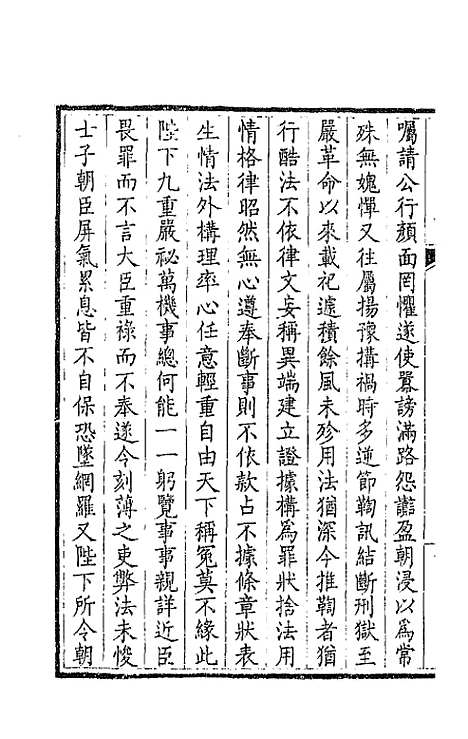 囑請公行顏面罔懼遂使囂謗滿路怨讟盈朝浸以爲常
殊無媿憚又往屬揚豫搆禍時多逆節鞫訊結斷刑獄至
嚴革命以來載祀遽積餘風未殄用法猶深今推鞫者猶
行酷法不依律文妄稱異端建立證據構爲罪狀捨法用
情格律昭然無心遵奉斷事則不依款占不據條章狀表
生情法外構理率心任意輕重自由天下稱冤莫不緣此
陛下九重嚴祕萬機事總何能一一躬覽事事親詳近臣
畏罪而不言大臣重祿而不奉遂令刻薄之吏弊法未悛
士子朝臣屏氣累息皆不自保恐墜網羅又陛下所令朝